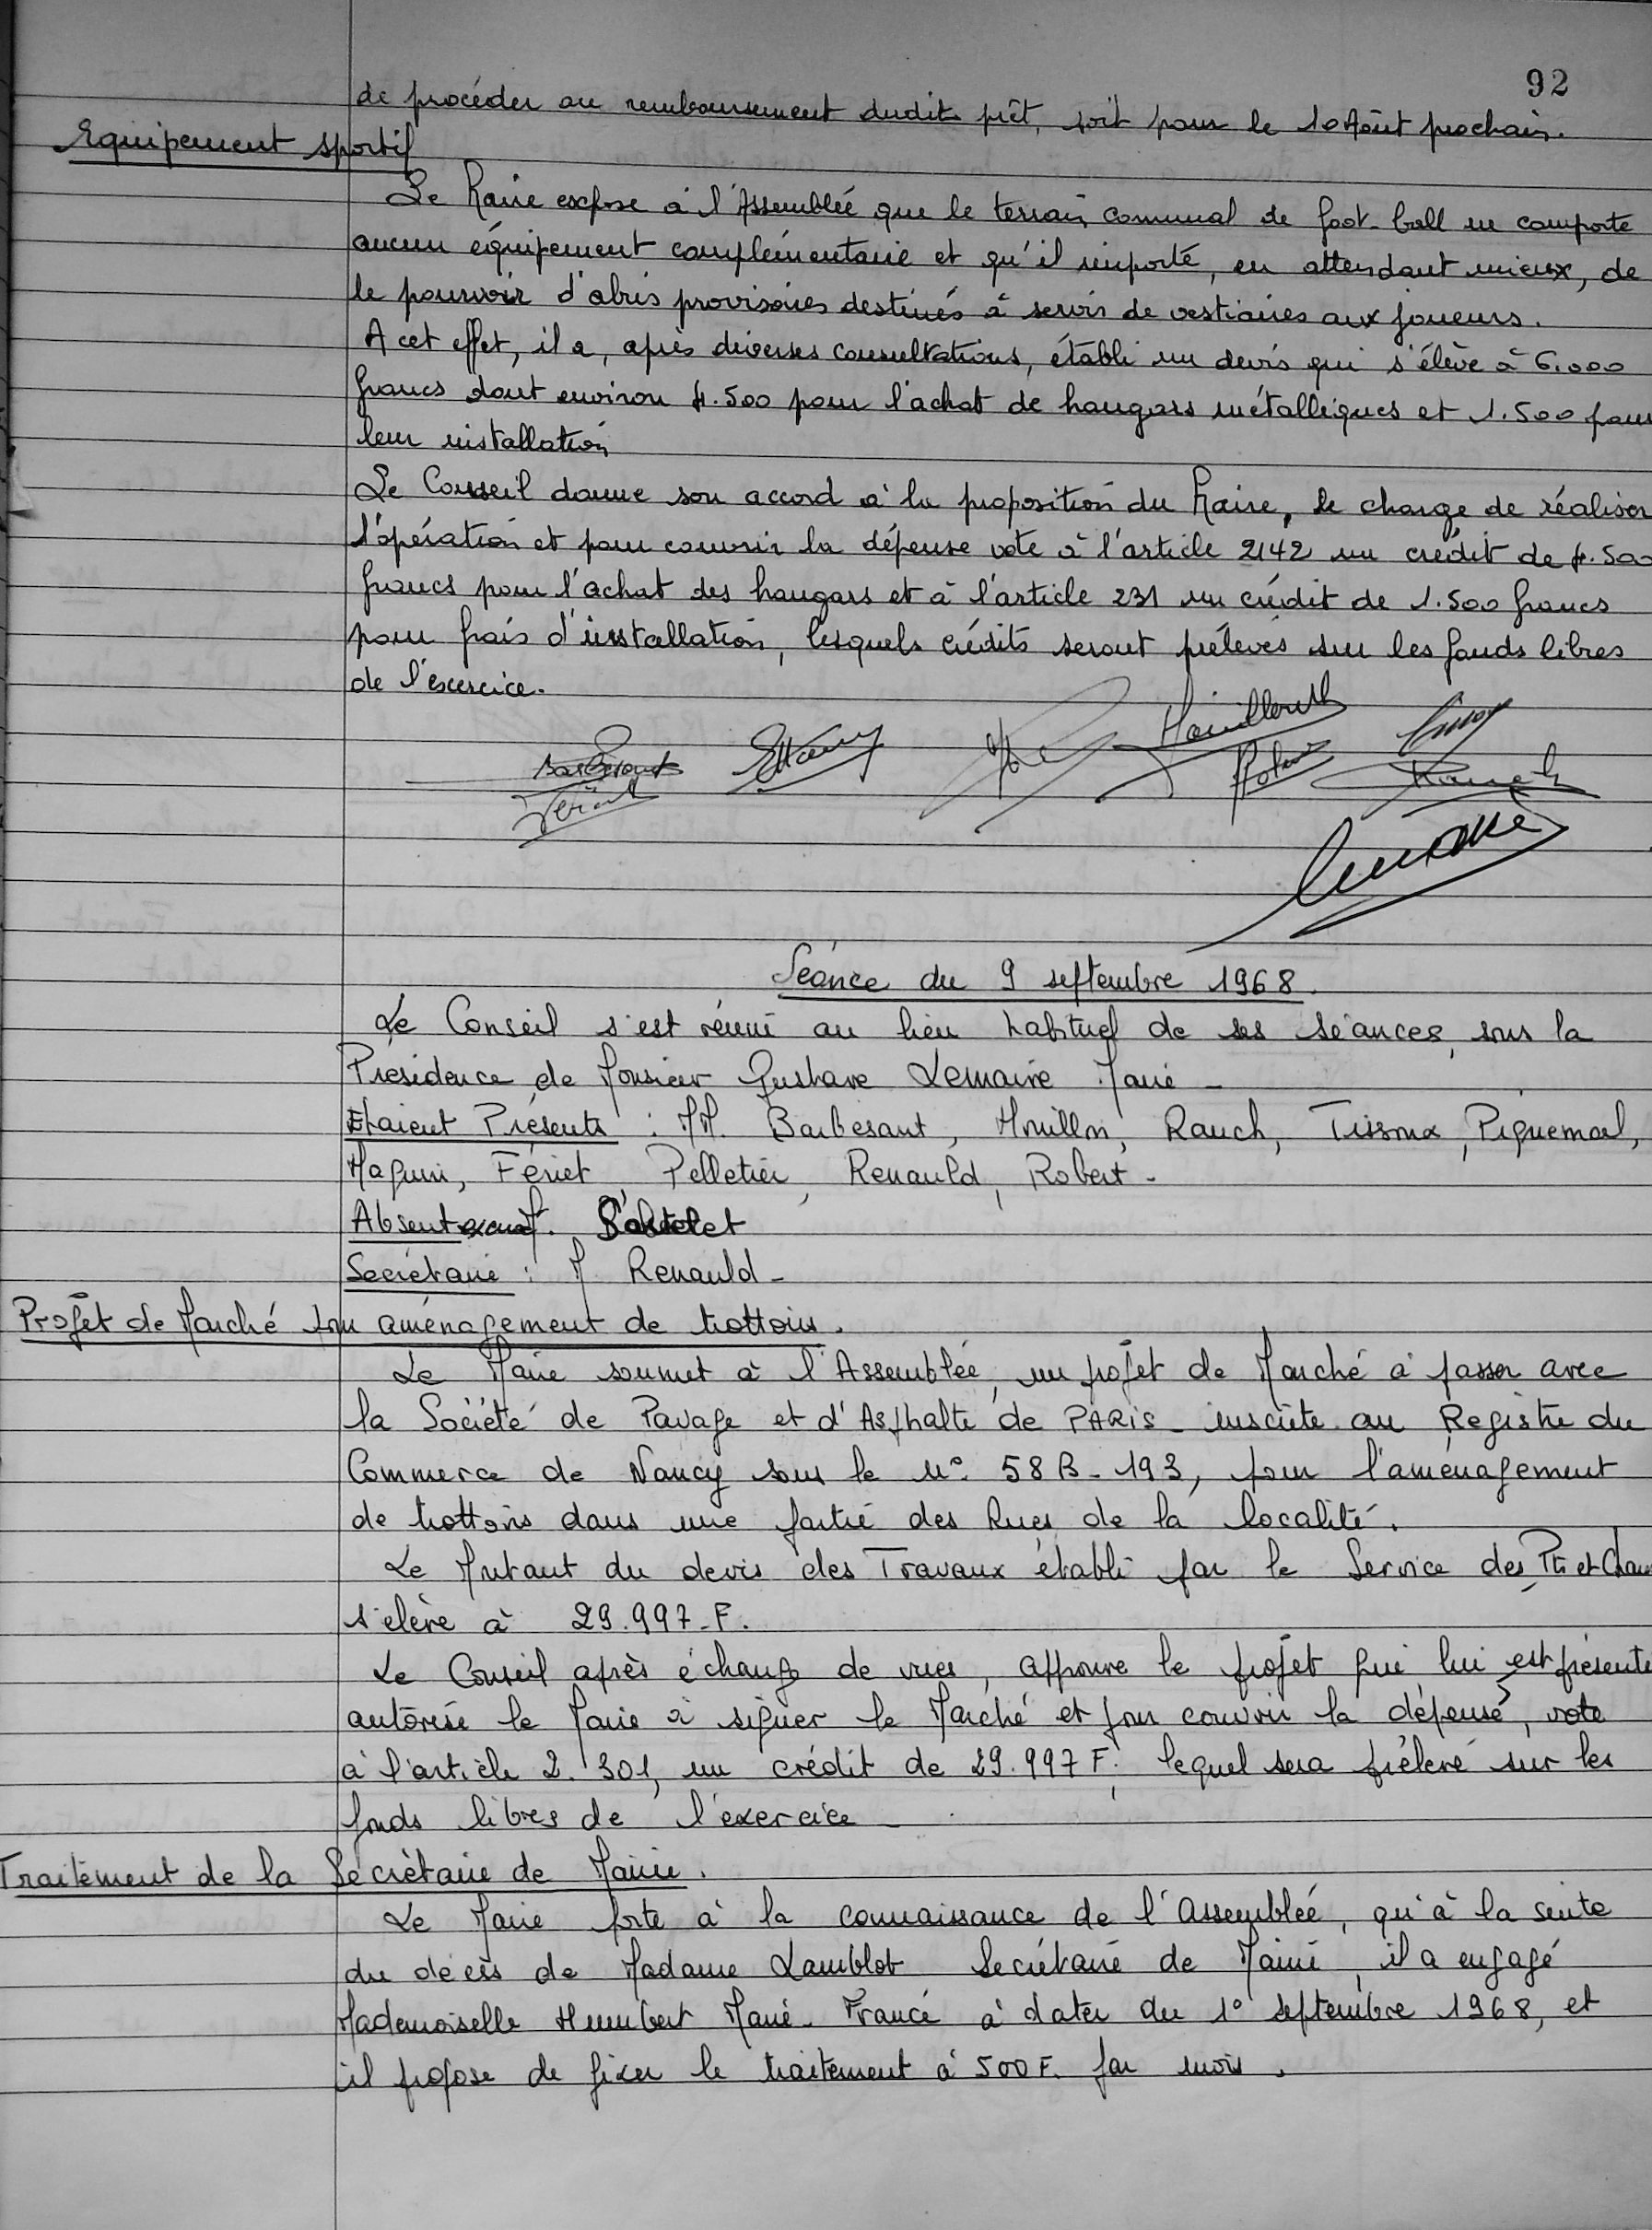 92
de procéder au remboursement dudit prêt, soit pour le 10 Août prochain.
Equipement sportif
Le Maire expose à l'Assemblée que le terrain communal de foot-ball ne comporte
aucun équipement complémentaire et qu'il importe, en attendant mieux, de
le pourvoir d'abris provisoires destinés à servir de vestiaires aux joueurs.
A cet effet, il a, après diverses consultations, établi un devis qui s'élève à 6.000
francs dont environ 4.500 pour l'achat de hangars métalliques et 1.500 pour
leur installation
Le Conseil donne son accord à la proposition du Maire, le charge de réaliser
l'opération et pour couvrir la dépense vote à l'article 2142 un crédit de 4.500
francs pour l'achat des hangars et à l'article 231 un crédit de 1.500 francs
pour frais d'installation, lesquels crédits seront prélevés sur les fonds libres
de l'exercice.
Barbesant
Rauch
Lemaire
Séance du 9 septembre 1968.
Le Conseil s'est réuni au lieu habituel de ses séances, sous la
Présidence de Monsieur Gustave Lemaire Maire -
Etaient Présents : MM. Barbesant, Houillon, Rauch, Tissoux, Piquemal,
Magnin, Fériet, Pelletier, Renauld, Robert -
Absent excusé M.
Secrétaire : M Renauld -
Projet de Marché pour aménagement de trottoirs.
Le Maire soumet à l'Assemblée, un projet de Marché à passer avec
la Société de Pavage et d'Asphalte de PARIS - inscrite au Registre du
Commerce de Nancy sous le N° 58 B - 193, pour l'aménagement
de trottoirs dans une partie des Rues de la localité.
Le Montant du devis des Travaux établi par le Service des Pts et Chau
s'élève à 29.997 - F.
Le Conseil après échange de vues, approuve le projet qui lui est présenté
autorise le Maire à signer le Marché et pour couvrir la dépense, vote
à l'article 2.301, un crédit de 29.997 F. lequel sera prélevé sur les
fonds libres de l'exercice -
Traitement de la Secrétaire de Mairie.
Le Maire porte à la connaissance de l'Assemblée, qu'à la suite
du décès de Madame Lamblot Secrétaire de Mairie, il a engagé
Mademoiselle Humbert Marie-France à dater du 1° septembre 1968, et
il propose de fixer le traitement à 500 F. par mois.